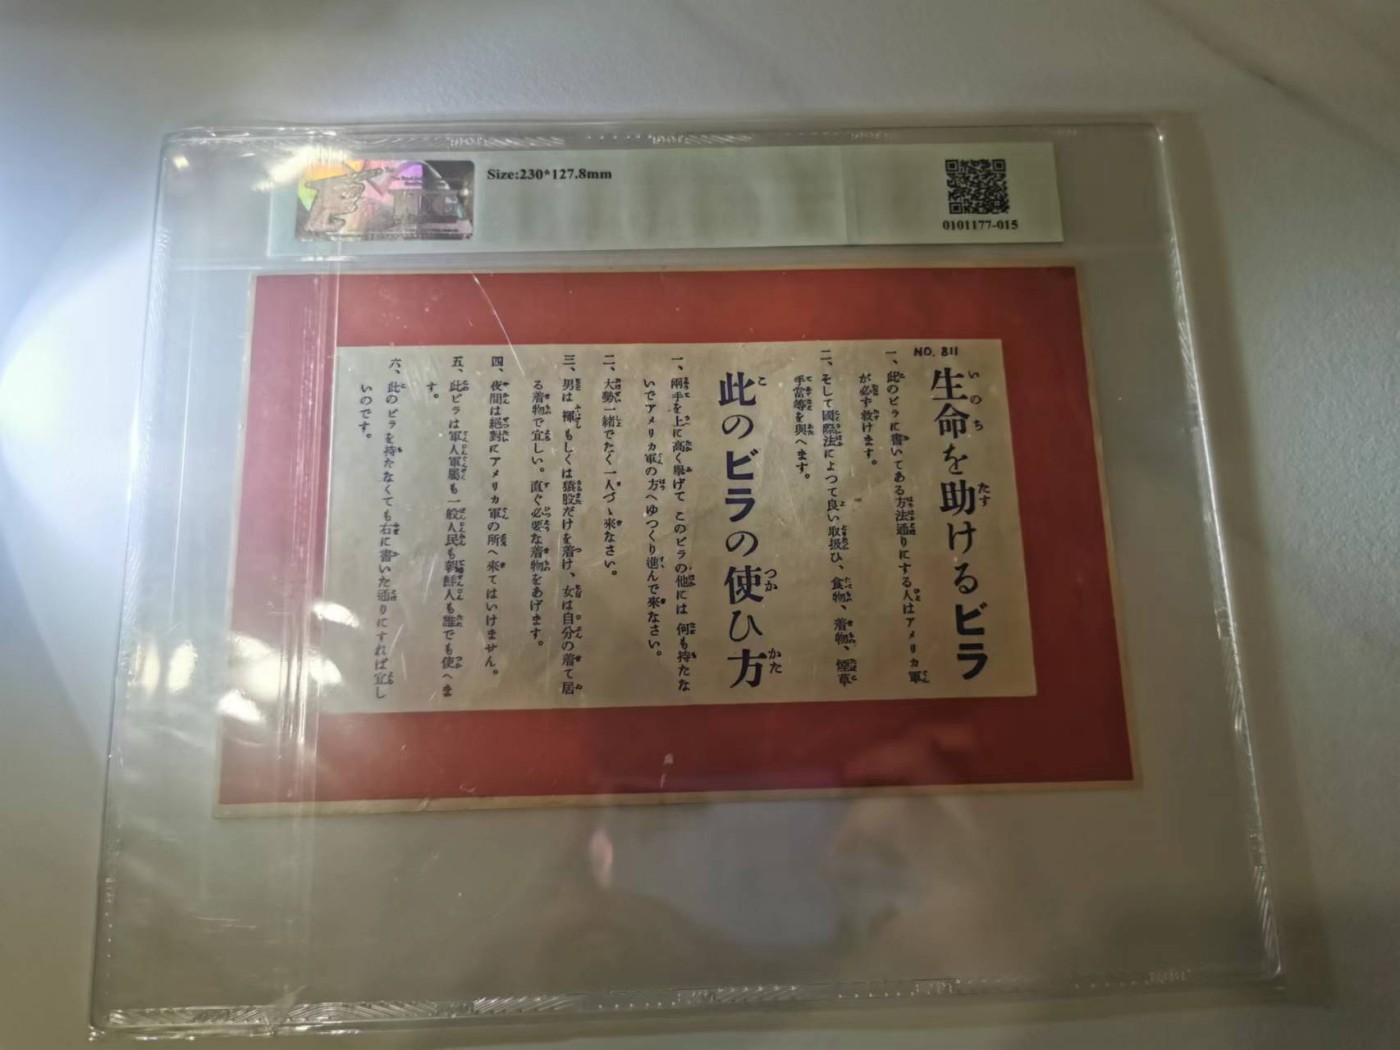 Size:230*127.8mm
0101177-015
NO. 811
生命を助けるビラ
一、此のビラに書いてある方法通りにする人はアメリカ軍
が必ず救けます。
二、そして國際法によつて良い取扱ひ、食物、着物、煙草
手當等を與へます。
此のビラの使ひ方
一、兩手を上に高く擧げて このビラの他には 何も持たな
いでアメリカ軍の方へゆつくり進んで來なさい。
二、大勢一緒でなく一人づゝ來なさい。
三、男は 褌 もしくは猿股だけを着け、女は自分の着て居
る着物で宜しい。直ぐ必要な着物をあげます。
四、夜間は絕對にアメリカ軍の所へ來てはいけません。
五、此ビラは軍人軍屬も一般人民も朝鮮人も誰でも使へま
す。
六、此のビラを持たなくても右に書いた通りにすれば宜し
いのです。